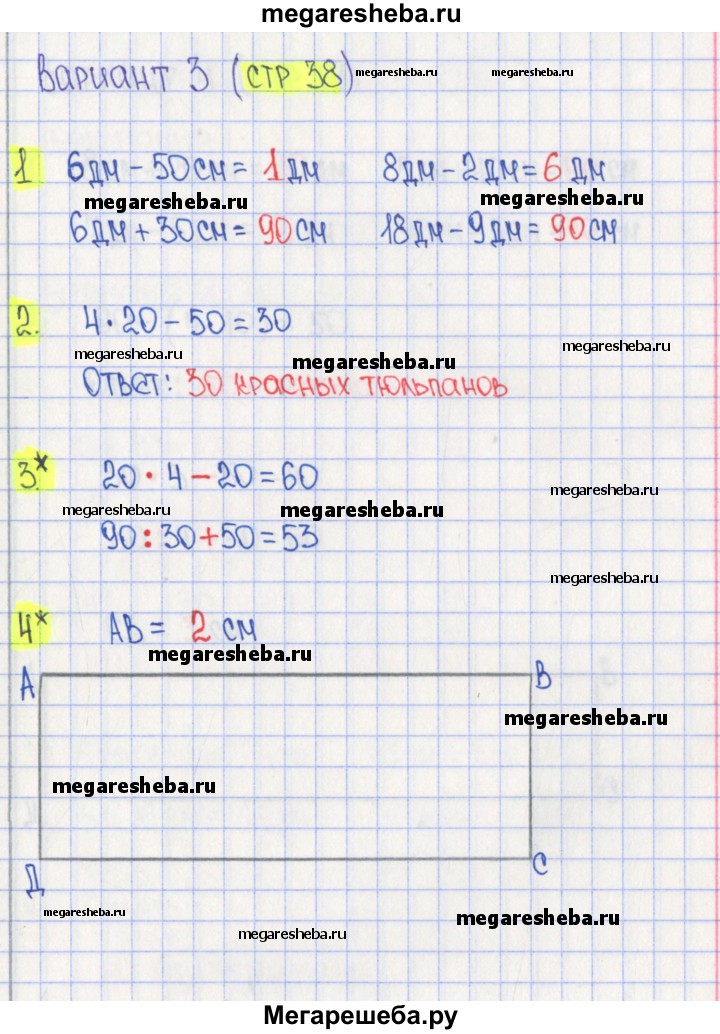 megaresheba.ru
Вариант 3 (стр 38)
megaresheba.ru megaresheba.ru
1 6дм - 50см = 1дм 8дм - 2дм = 6 дм
megaresheba.ru megaresheba.ru
6дм + 30см = 90см 18дм - 9дм = 90см
2. 4 · 20 - 50 = 30
megaresheba.ru megaresheba.ru megaresheba.ru
Ответ: 30 красных тюльпанов
3.* 20 · 4 - 20 = 60
megaresheba.ru
megaresheba.ru megaresheba.ru
90 : 30 + 50 = 53
megaresheba.ru
4* АВ = 2 см
megaresheba.ru
А В
megaresheba.ru
megaresheba.ru
Д С
megaresheba.ru megaresheba.ru
megaresheba.ru
Мегарешеба.ру